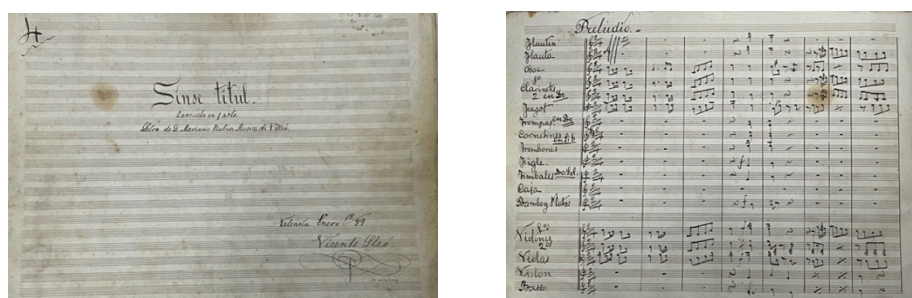 4
Sinse titul.
Zarzuela en 1 acto.
Letra de D. Mariano
Valencia Enero 1º 87
Vicente Lleó
Preludio.
Flautin
Flauta
Oboe
Clarinetes
2 en Do
Fagot
Trompas en
Cornetines
Trombones
Figle.
Timbales
Caja
Bombo y Platos
Violines
Violas
Violon
Basso